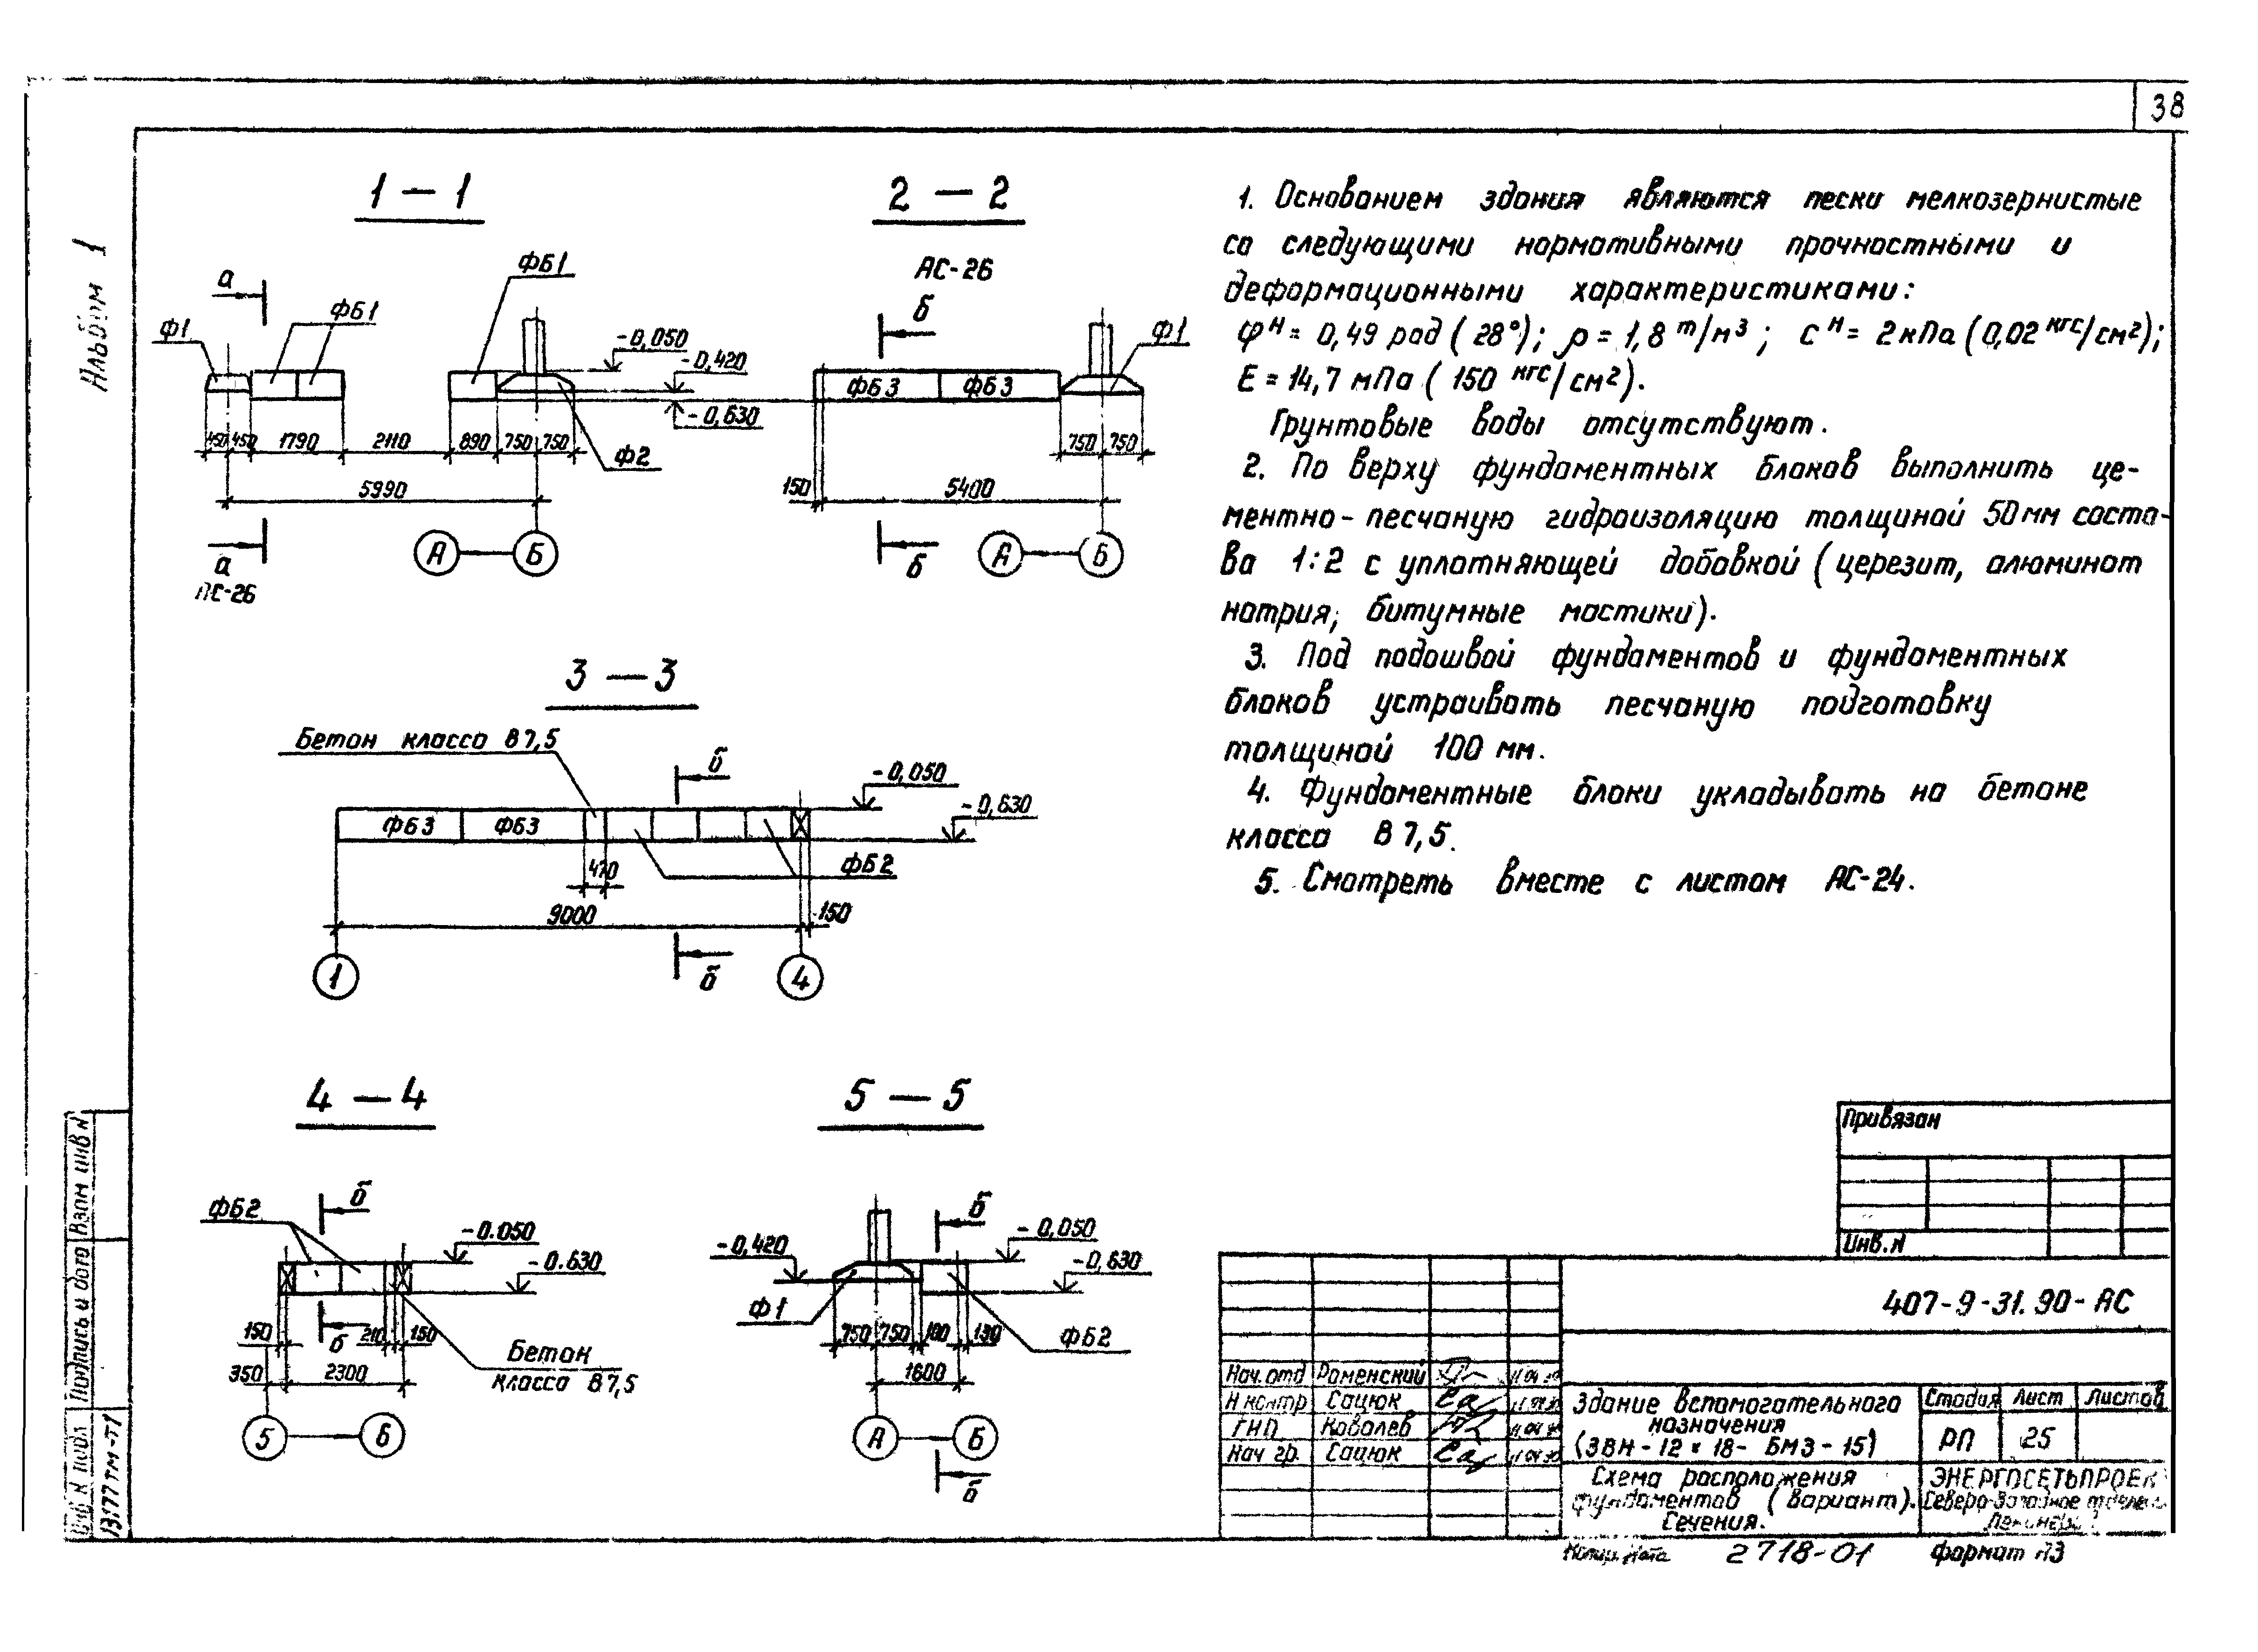 38
Альбом 1
1 — 1
а
Ф1
ФБ1
ФБ1
-0,050
-0,420
-0,630
450 450 1790 2110 890 750 750
Ф2
5990
А Б
а
АС-26
2 — 2
АС-26
б
Ф1
ФБ3 ФБ3
750 750
150 5400
А Б
б
3 — 3
Бетон класса В7,5
б
-0,050
-0,630
ФБ3 ФБ3
470
ФБ2
9000 150
б
1 4
4 — 4
ФБ2
б
-0.050
-0.630
150 б 210 150
350 2300
Бетон
класса В7,5
5 Б
5 — 5
б
-0,420
-0,050
-0,630
Ф1
750 750 100 150
ФБ2
1600
А Б
б
1. Основанием здания являются пески мелкозернистые
со следующими нормативными прочностными и
деформационными характеристиками:
φн = 0,49 рад (28°); ρ = 1,8 т/м³; сн = 2кПа (0,02 кгс/см²);
Е = 14,7 мПа (150 кгс/см²).
Грунтовые воды отсутствуют.
2. По верху фундаментных блоков выполнить це-
ментно-песчаную гидроизоляцию толщиной 50мм соста-
ва 1:2 с уплотняющей добавкой (церезит, алюминат
натрия, битумные мастики).
3. Под подошвой фундаментов и фундаментных
блоков устраивать песчаную подготовку
толщиной 100 мм.
4. Фундаментные блоки укладывать на бетоне
класса В 7,5.
5. Смотреть вместе с листом АС-24.
Привязан
Инв. N
407-9-31.90-АС
Нач. отд Раменский
Н контр Сацюк
ГИП Ковалев
Нач гр. Сацюк
Здание вспомогательного
назначения
(ЗВН-12×18-БМЗ-15)
Стадия Лист Листов
РП 25
Схема расположения
фундаментов (вариант).
Сечения.
ЭНЕРГОСЕТЬПРОЕК
Северо-Западное отделен.
2718-01
формат А3
Взам инв N
Подпись и дата
Инв N подл
13177тм-т1